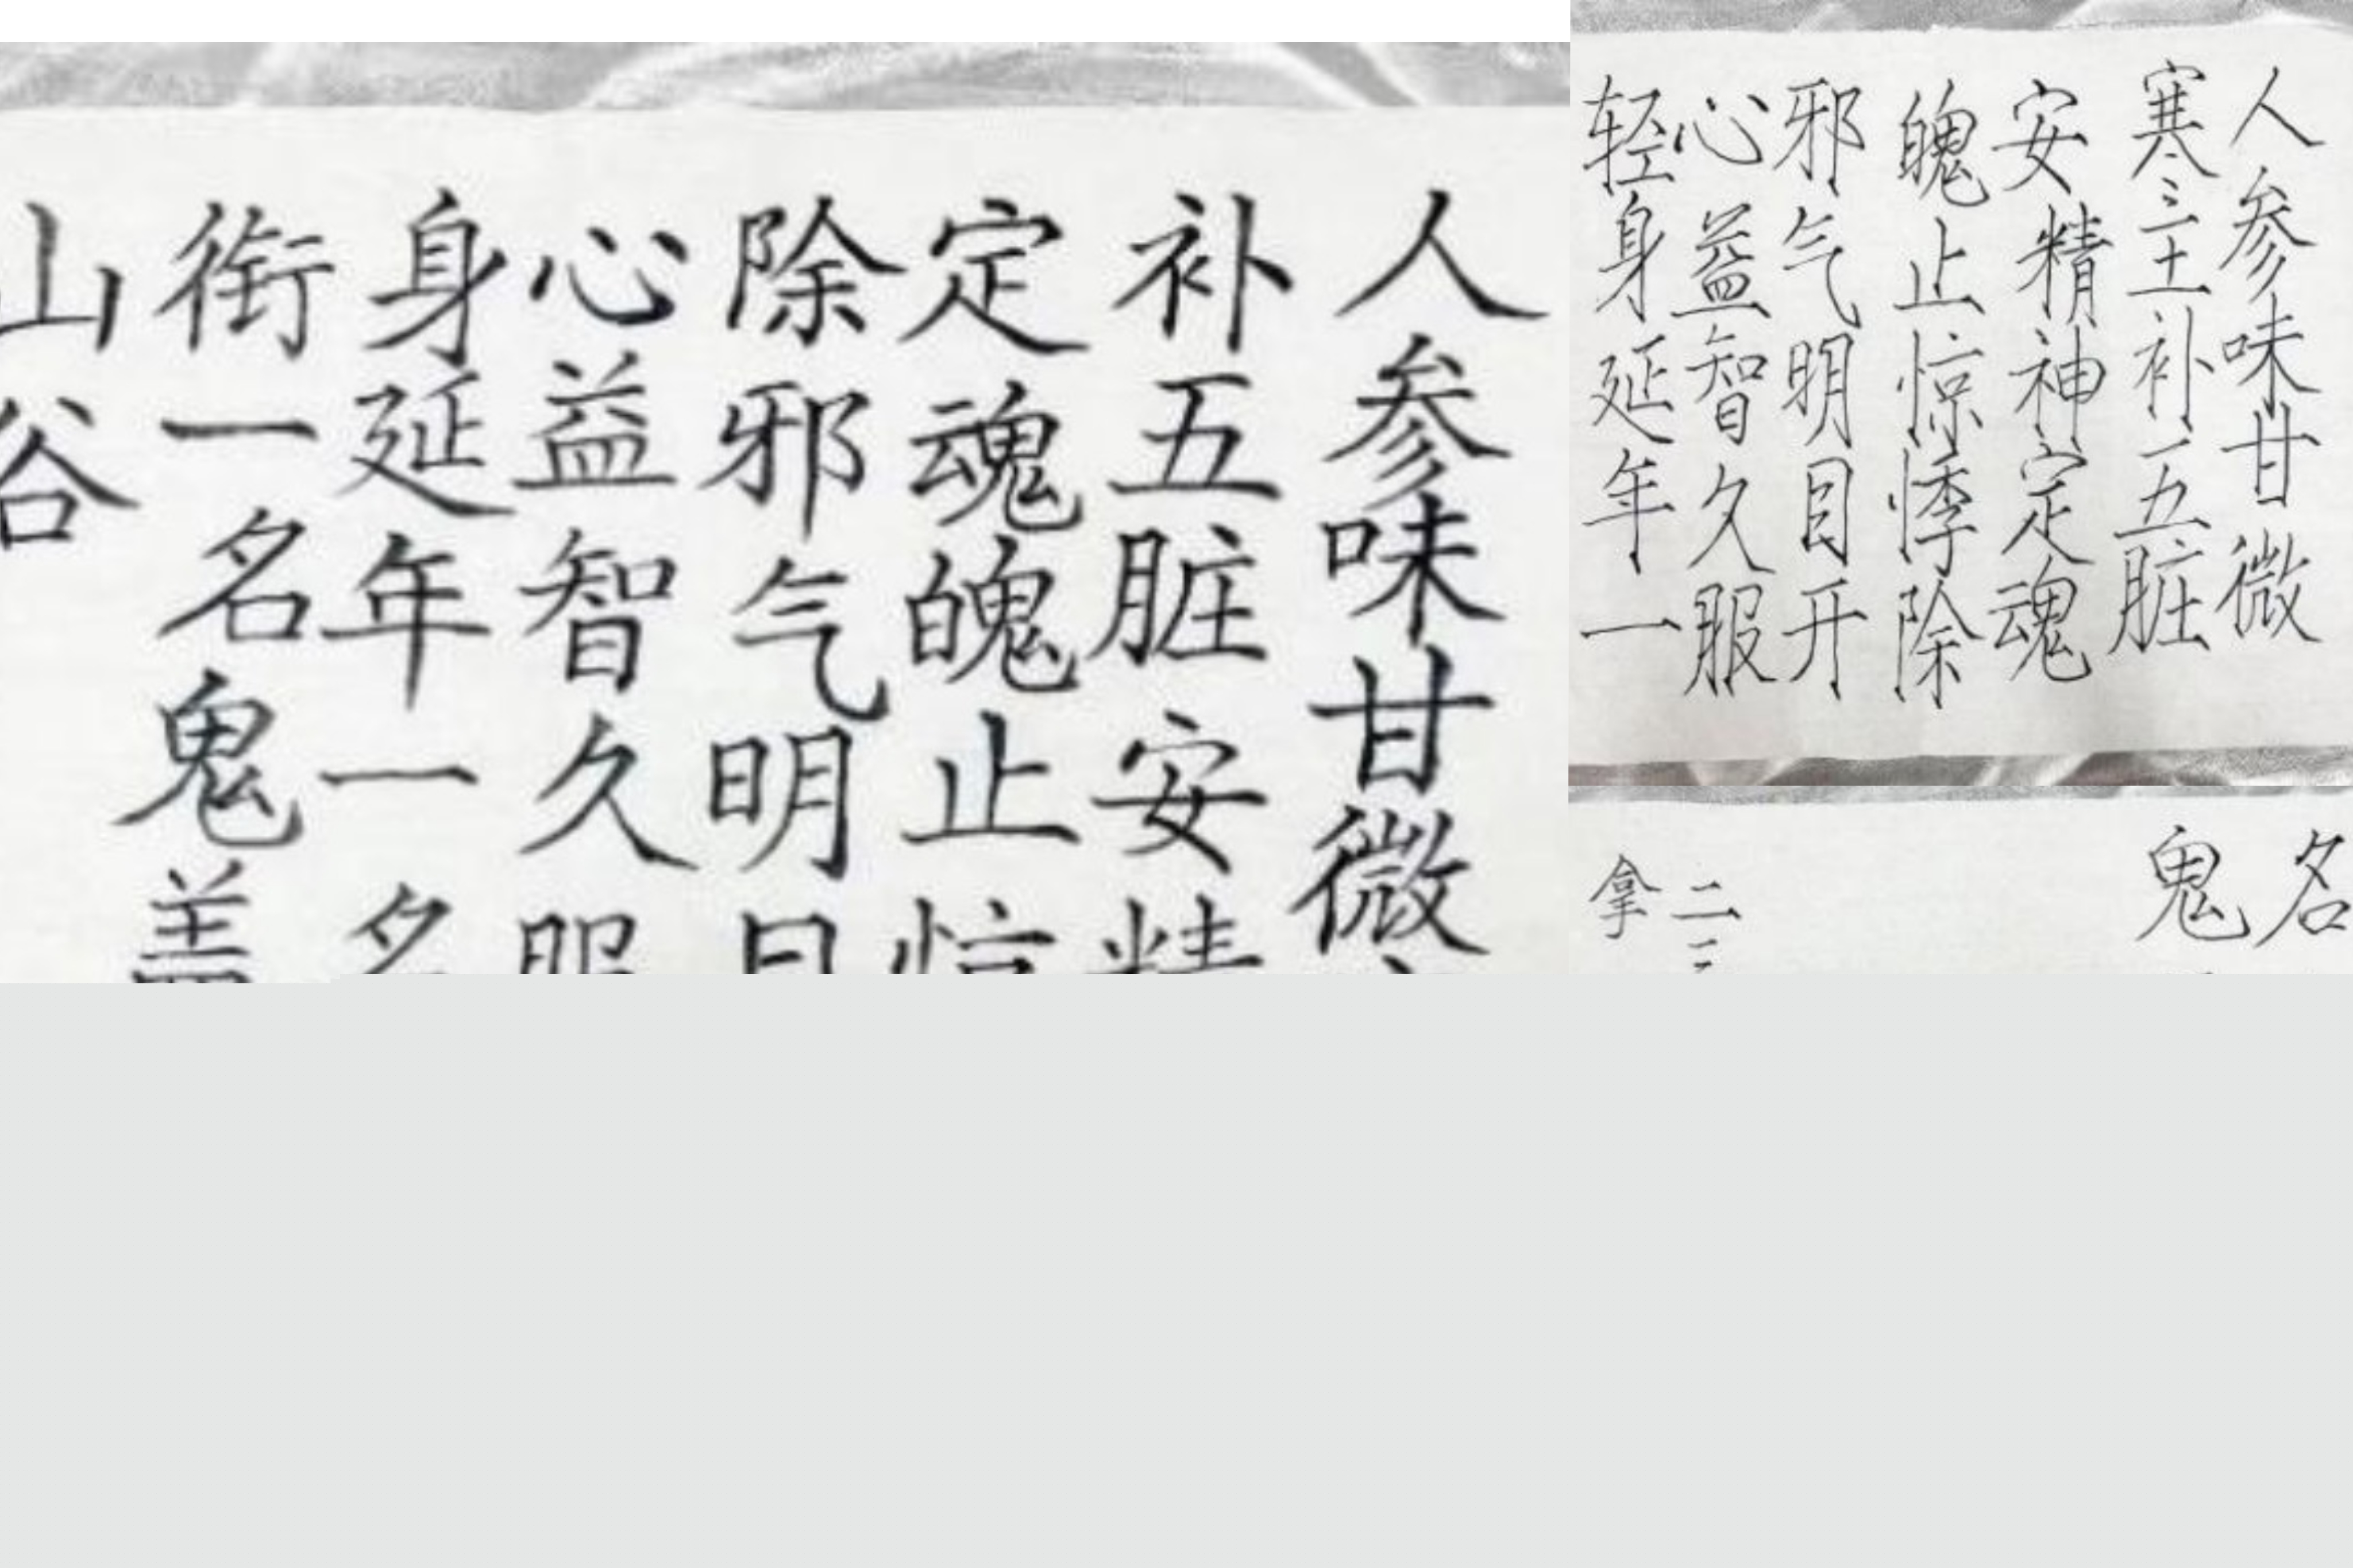 人参味甘微
补五脏安精
定魂魄止惊
除邪气明目
心益智久服
身延年一名
衔一名鬼盖
山谷
人参味甘微
寒三主补五五脏
安精神定魂
魄止惊悸除
邪气明目开
心益智久服
轻身延年一
名
鬼
二三
拿